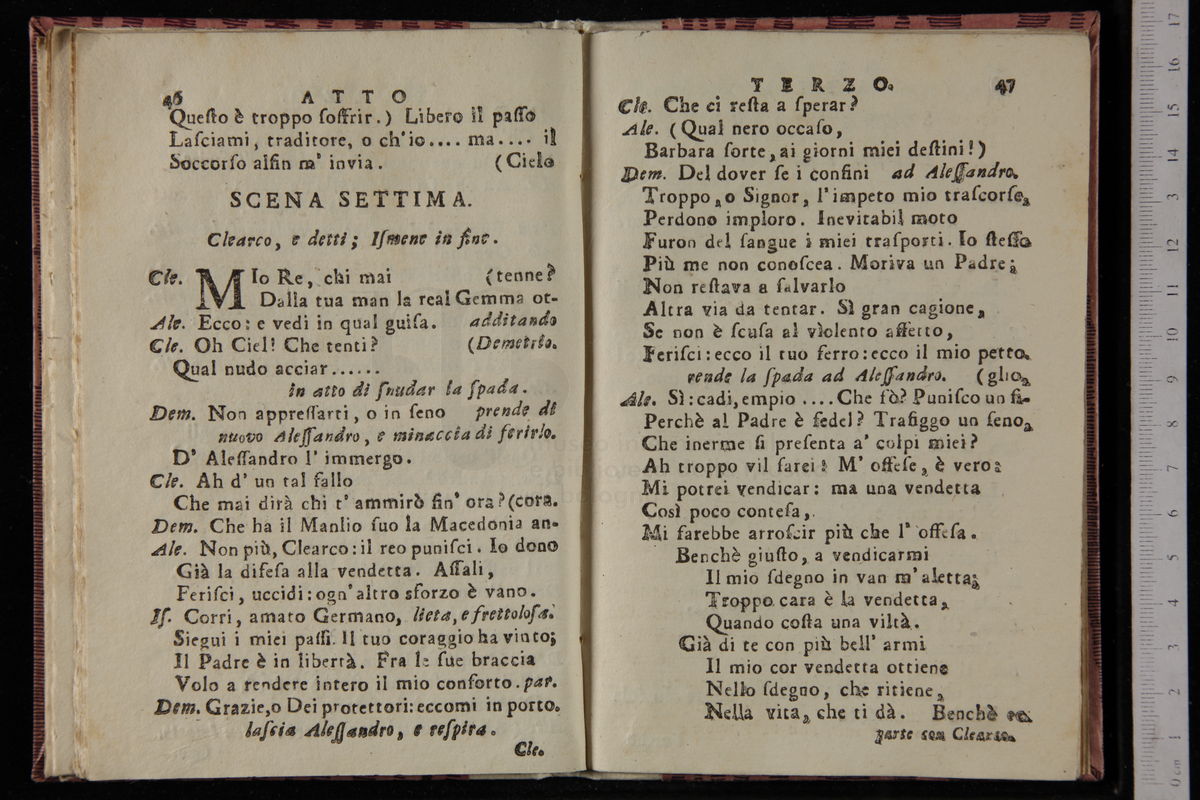 46 ATTO
Queſto è troppo ſoffrir.) Libero il paſſo
Laſciami, traditore, o ch'io.... ma.... il
Soccorſo alfin m' invia. (Cielo
SCENA SETTIMA.
Clearco, e detti; Iſmene in fine.
Cle. MIo Re, chi mai (tenne?
Dalla tua man la real Gemma ot-
Ale. Ecco: e vedi in qual guiſa. additando
Cle. Oh Ciel! Che tenti? (Demetrio.
Qual nudo acciar......
in atto di ſnudar la ſpada.
Dem. Non appreſſarti, o in ſeno prende di
nuovo Aleſſandro, e minaccia di ferirlo.
D' Aleſſandro l' immergo.
Cle. Ah d' un tal fallo
Che mai dirà chi t' ammirò fin' ora? (cora.
Dem. Che ha il Manlio ſuo la Macedonia an-
Ale. Non più, Clearco: il reo puniſci. Io dono
Già la difeſa alla vendetta. Aſſali,
Feriſci, uccidi: ogn' altro sforzo è vano.
Iſ. Corri, amato Germano, lieta, e frettoloſa.
Siegui i miei paſſi. Il tuo coraggio ha vinto;
Il Padre è in libertà. Fra le ſue braccia
Volo a rendere intero il mio conforto. par.
Dem. Grazie, o Dei protettori: eccomi in porto.
laſcia Aleſſandro, e reſpira.
Cle.
TERZO. 47
Cle. Che ci reſta a ſperar?
Ale. (Qual nero occaſo,
Barbara ſorte, ai giorni miei deſtini!)
Dem. Del dover ſe i confini ad Aleſſandro.
Troppo, o Signor, l' impeto mio traſcorſe,
Perdono imploro. Inevitabil moto
Furon del ſangue i miei traſporti. Io ſteſſo
Più me non conoſcea. Moriva un Padre;
Non reſtava a ſalvarlo
Altra via da tentar. Sì gran cagione,
Se non è ſcuſa al violento affetto,
Feriſci: ecco il tuo ferro: ecco il mio petto.
rende la ſpada ad Aleſſandro. (glio,
Ale. Sì: cadi, empio .... Che fò? Puniſco un fi-
Perchè al Padre è fedel? Trafiggo un ſeno,
Che inerme ſi preſenta a' colpi miei?
Ah troppo vil ſarei! M' offeſe, è vero:
Mi potrei vendicar: ma una vendetta
Così poco conteſa,
Mi farebbe arroſcir più che l' offeſa.
Benchè giuſto, a vendicarmi
Il mio ſdegno in van m' aletta;
Troppo cara è la vendetta,
Quando coſta una viltà.
Già di te con più bell' armi
Il mio cor vendetta ottiene
Nello ſdegno, che ritiene,
Nella vita, che ti dà. Benchè ec.
parte con Clearco.
0 cm 1 2 3 4 5 6 7 8 9 10 11 12 13 14 15 16 17